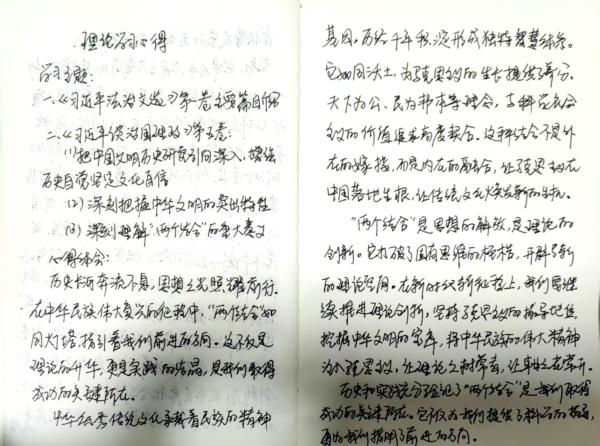 理论学习心得
学习主题：
一、《习近平法治文选》第一卷主要篇目介绍
二、《习近平谈治国理政》第五卷：
(1)把中国文明历史研究引向深入，增强
历史自觉坚定文化自信
(2)深刻把握中华文明的突出特性
(3)深刻理解“两个结合”的重大意义
心得体会：
历史长河奔流不息，思想之光照耀前行。
在中华民族伟大复兴的征程中，“两个结合”如
同灯塔，指引着我们前进的方向。这不仅是
理论的升华，更是实践的结晶，是我们取得
成功的关键所在。
中华优秀传统文化承载着民族的精神
基因，历经千年积淀形成独特智慧体系。
它如同沃土，为马克思主义的生长提供了养分。
天下为公、民为邦本等理念，与科学社会
主义的价值追求高度契合。这种结合不是外
在的嫁接，而是内在的融合，让马克思主义在
中国落地生根，让传统文化焕发新的生机。
“两个结合”是思想的解放，是理论的
创新。它打破了固有思维的桎梏，开辟了新
的理论空间。在新时代新征程上，我们要继
续推进理论创新，坚持马克思主义的指导地位，
挖掘中华文明的宝库，将中华民族的伟大精神
注入马克思主义，让理论之树常青，让事业之花常开。
历史和实践充分验证了“两个结合”是我们取得
成功的关键所在。它不仅为我们提供了科学的指导，
更为我们指明了前进的方向。